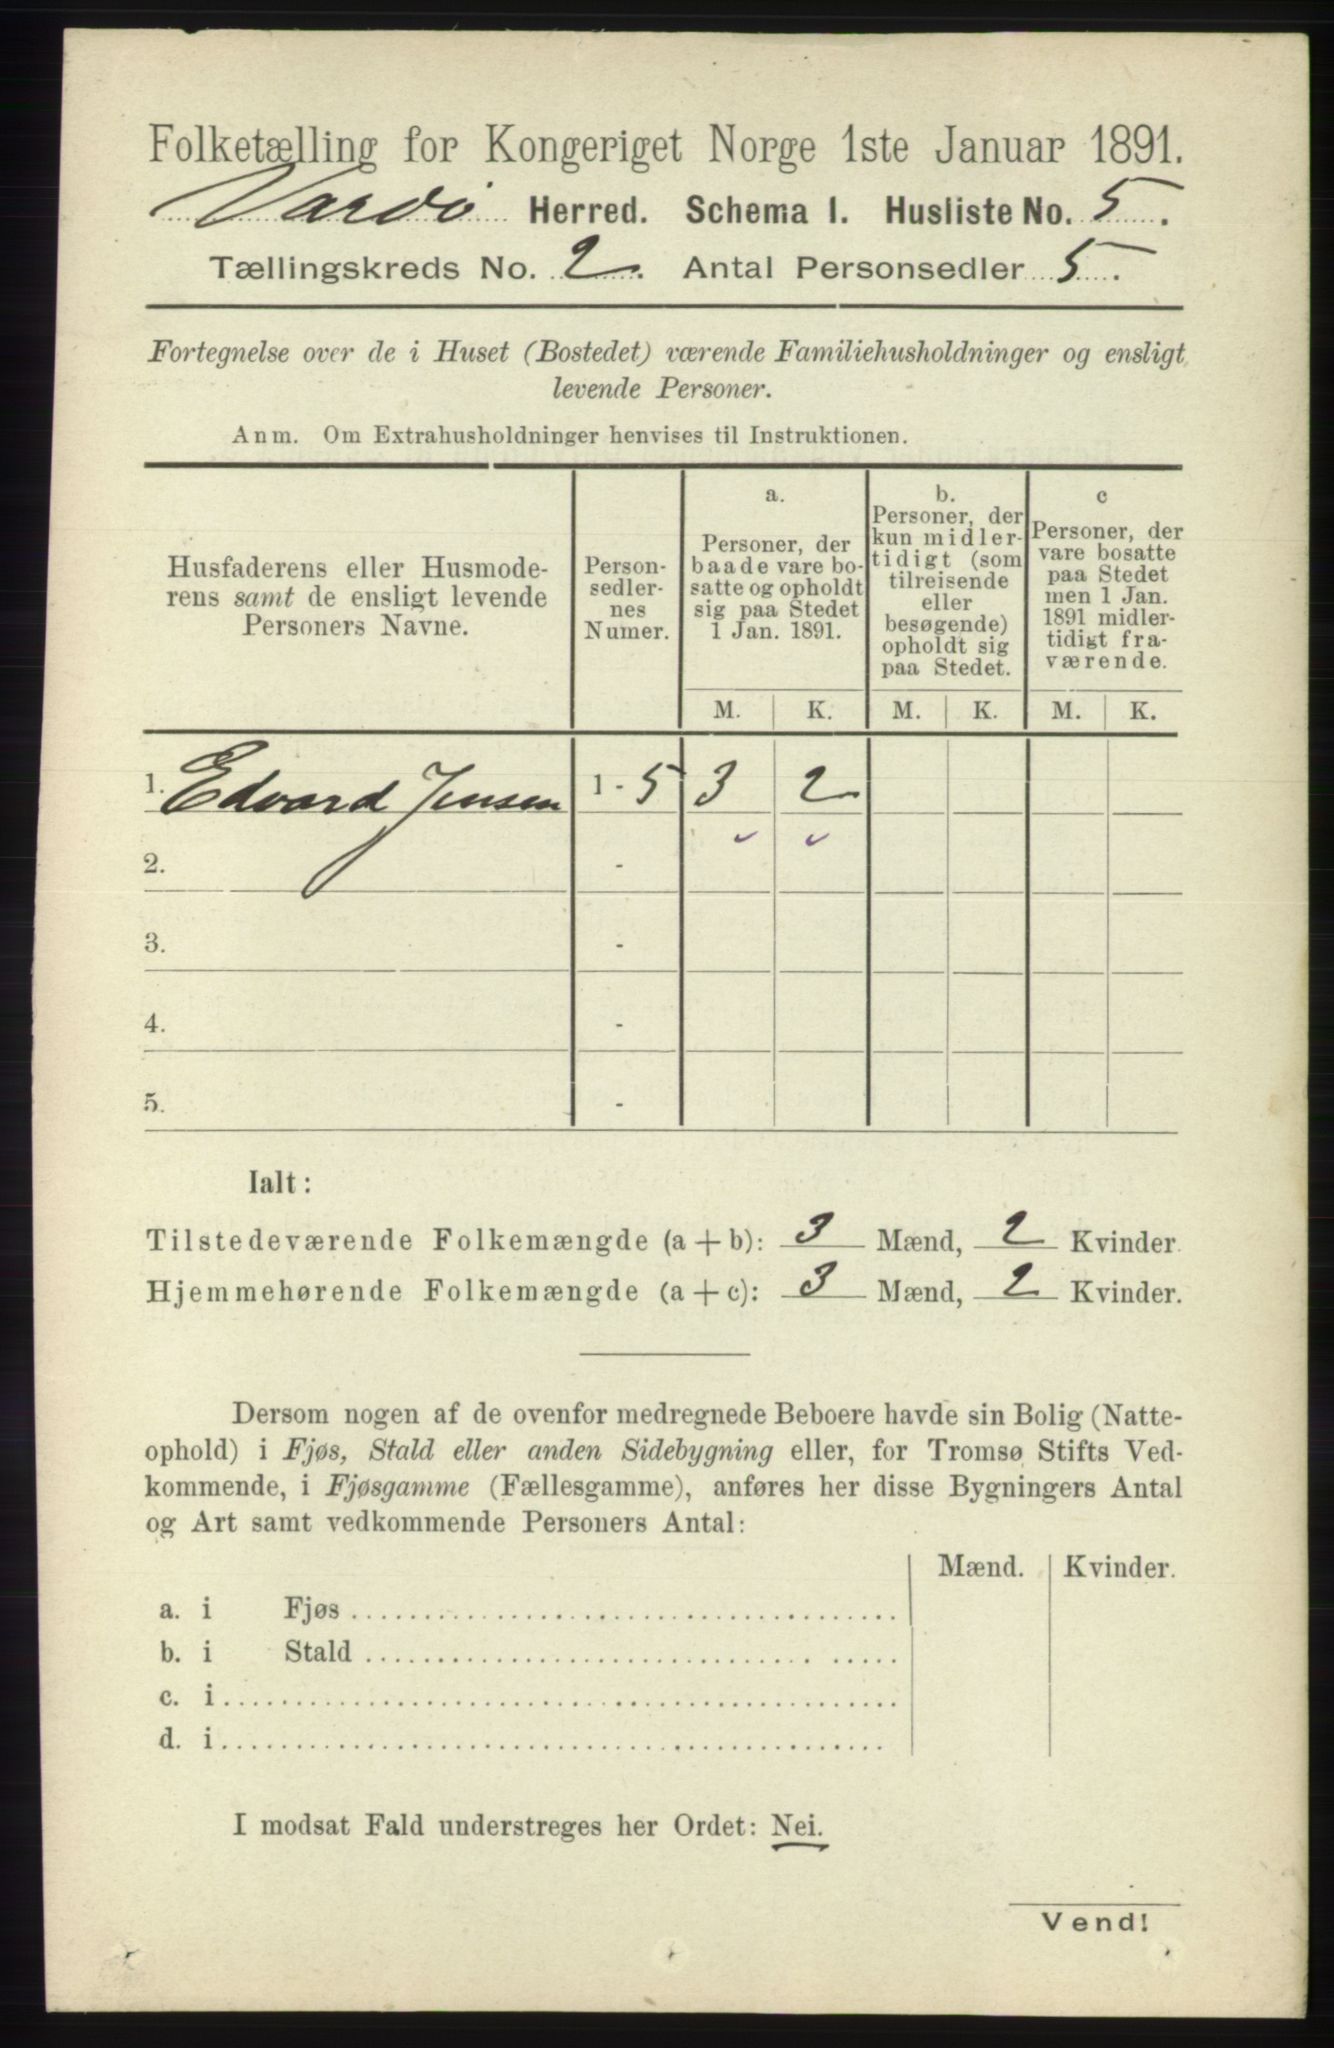 Folketælling for Kongeriget Norge 1ste Januar 1891.
Vardö Herred. Schema 1. Husliste No. 5.
Tællingskreds No. 2. Antal Personsedler 5.
Fortegnelse over de i Huset (Bostedet) værende Familiehusholdninger og ensligt
levende Personer.
Anm. Om Extrahusholdninger henvises til Instruktionen.
Husfaderens eller Husmode-
rens samt de ensligt levende
Personers Navne.
Person-
sedler-
nes
Numer.
a.
Personer, der
baade vare bo-
satte og opholdt
sig paa Stedet
1 Jan. 1891.
b.
Personer, der
kun midler-
tidigt (som
tilreisende
eller
besøgende)
opholdt sig
paa Stedet.
c
Personer, der
vare bosatte
paa Stedet
men 1 Jan.
1891 midler-
tidigt fra-
værende.
M. K. M. K. M. K.
1. Edvard Jensen 1 - 5 3 2
2. -
3. -
4. -
5. -
Ialt:
Tilstedeværende Folkemængde (a + b): 3 Mænd, 2 Kvinder
Hjemmehørende Folkemængde (a + c): 3 Mænd, 2 Kvinder.
Dersom nogen af de ovenfor medregnede Beboere havde sin Bolig (Natte-
ophold) i Fjøs, Stald eller anden Sidebygning eller, for Tromsø Stifts Ved-
kommende, i Fjøsgamme (Fællesgamme), anføres her disse Bygningers Antal
og Art samt vedkommende Personers Antal:
Mænd. Kvinder.
a. i Fjøs
b. i Stald
c. i
d. i
I modsat Fald understreges her Ordet: Nei.
Vend!